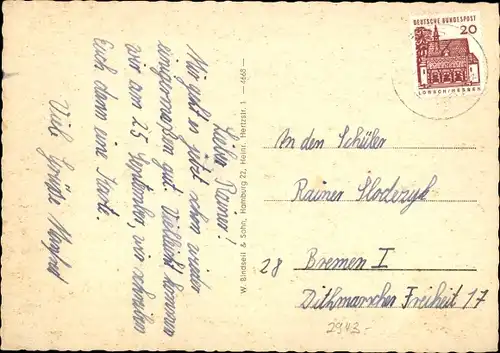 Lieber Rainer!
Mir geht es jetzt schon wieder
einigermaßen gut. Vielleicht kommen
wir am 25 September, wir schreiben
Euch dann eine Karte.
Viele Grüße Manfred
W. Bindseil & Sohn, Hamburg 22, Heinr. Hertzstr. 1 — 4668 —
DEUTSCHE BUNDESPOST
20
LORSCH/HESSEN
An den Schüler
Rainer Slodczyk
28 Bremen I
Dithmarscher Freiheit 17
2943.-